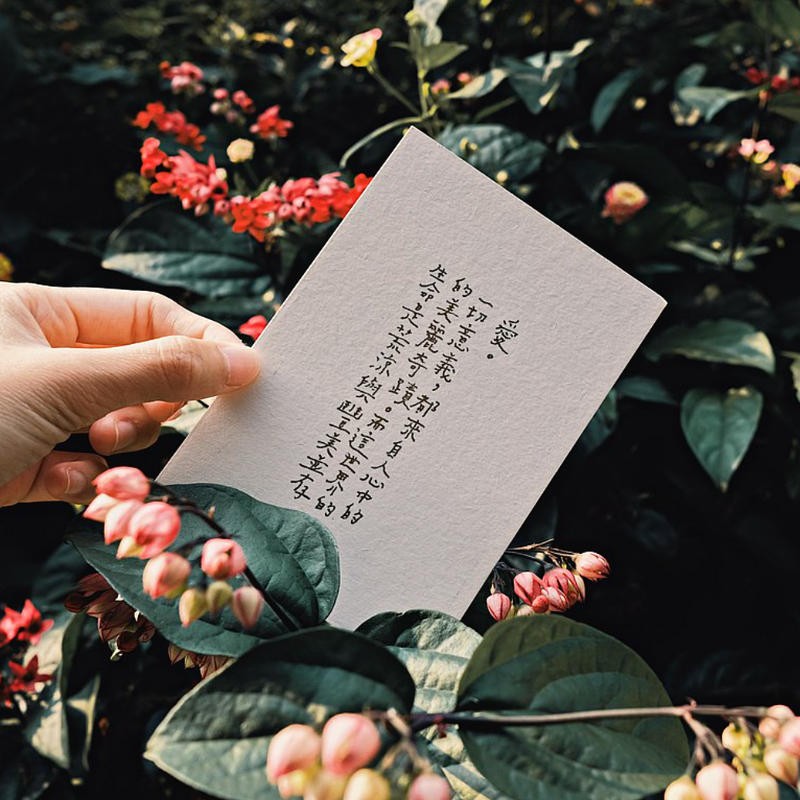 愛。
一切意義,都來自人心中的
的美麗奇蹟。而這世界的
生命是荒涼與豐美並存